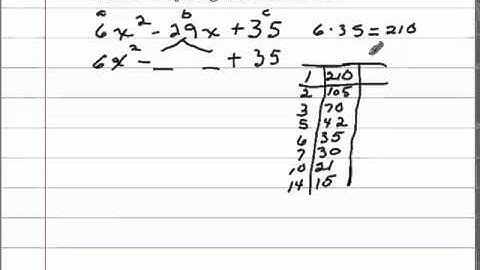 a b c
6x² - 29x + 35 6 · 35 = 210
6x² - _ _ + 35
1 210
2 105
3 70
5 42
6 35
7 30
10 21
14 15